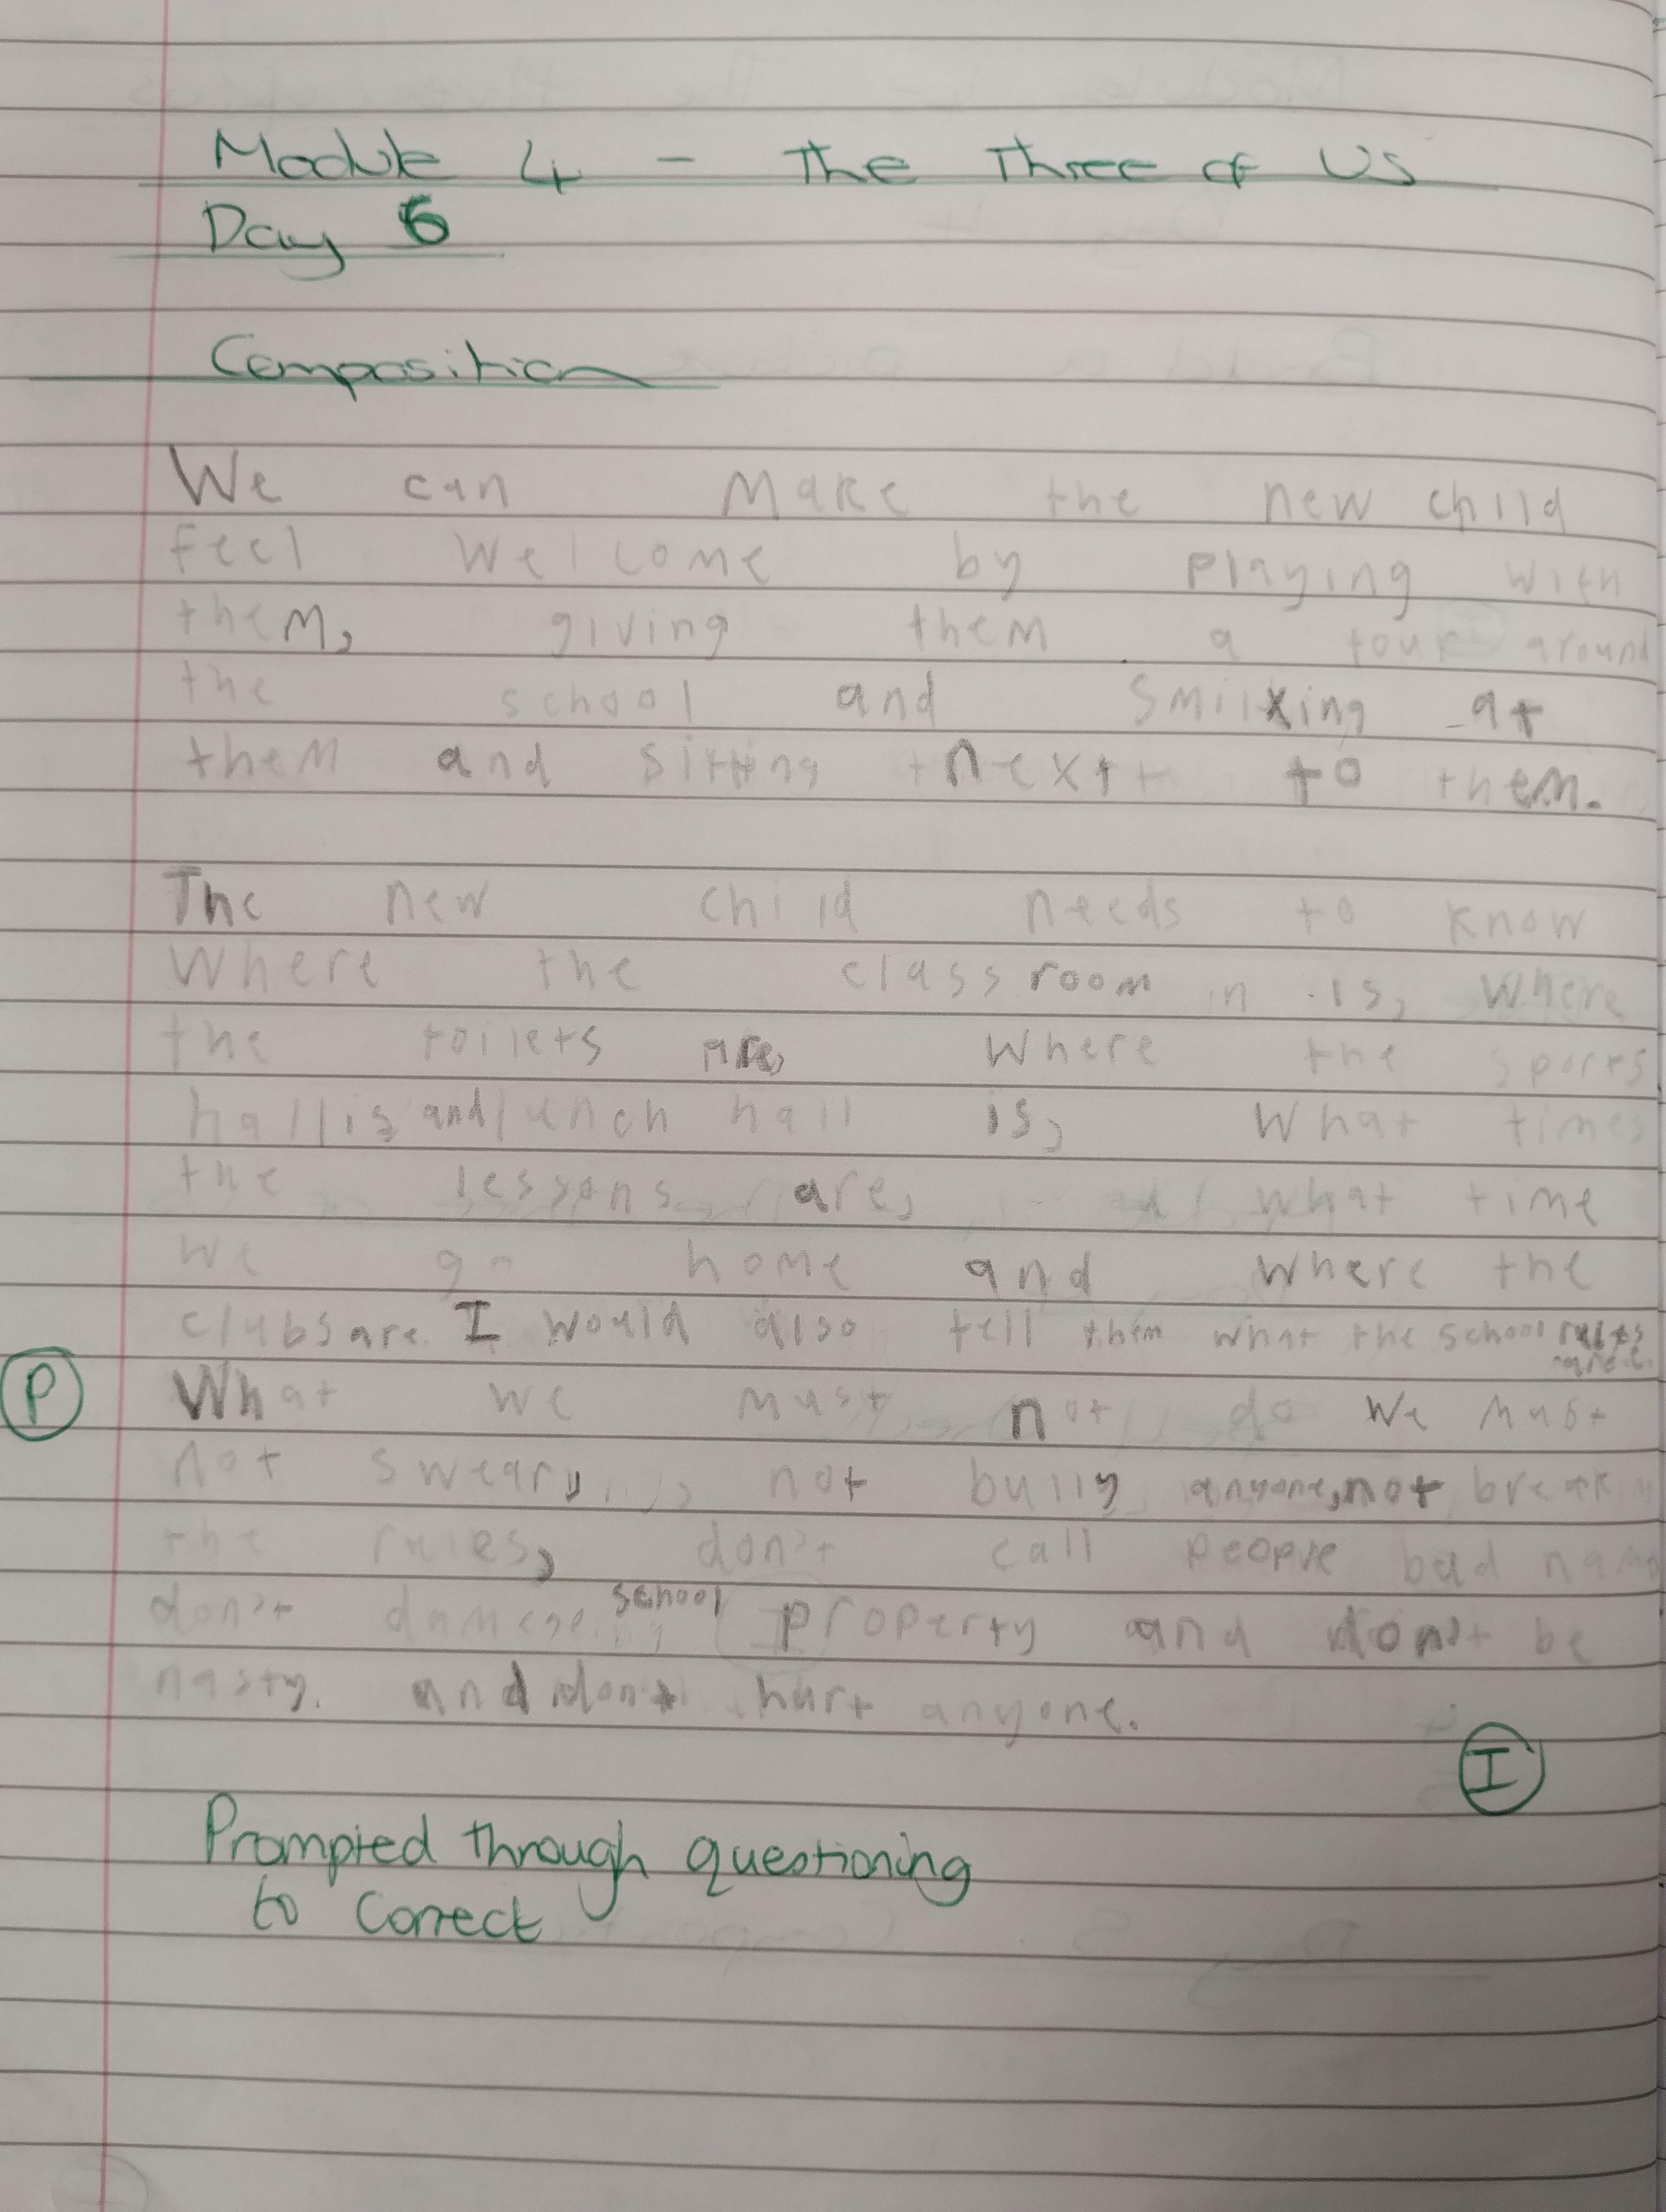 Module 4 - The Three of Us
Day 6
Composition
We can Make the new child
feel welcome by playing with
theM, giving them a tour around
the school and Smiling at
them and sitting next to them.
The new child needs to know
Where the classroom is, where
the toilets are, where the sports
hall is and lunch hall is, What times
the lessons are, what time
we go home and where the
clubs are. I would also tell them what the school rules
are.
P What we must not do We must
not swear, not bully anyone, not break
the rules, don't call people bad
don't school property and don't be
nasty. and don't hurt anyone.
I
Prompted through questioning
to correct